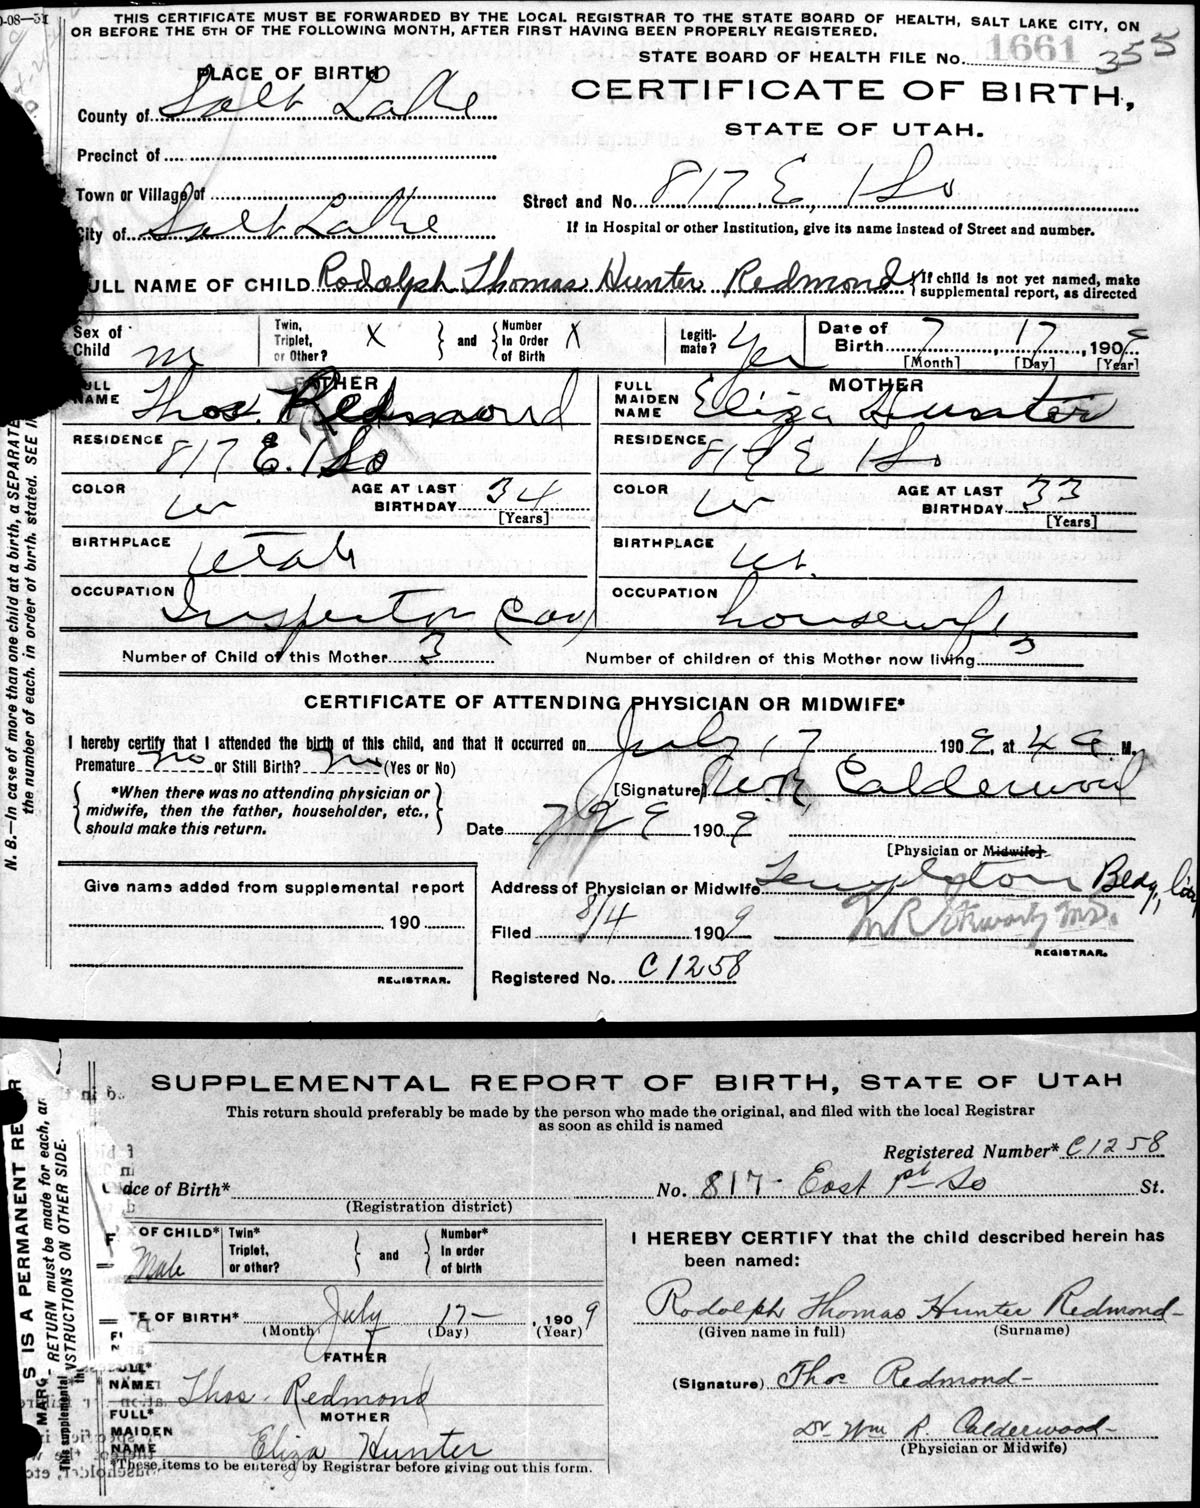 THIS CERTIFICATE MUST BE FORWARDED BY THE LOCAL REGISTRAR TO THE STATE BOARD OF HEALTH, SALT LAKE CITY, ON
OR BEFORE THE 5TH OF THE FOLLOWING MONTH, AFTER FIRST HAVING BEEN PROPERLY REGISTERED.
STATE BOARD OF HEALTH FILE No. 1661 355
PLACE OF BIRTH
CERTIFICATE OF BIRTH,
STATE OF UTAH.
County of Salt Lake
Precinct of
Town or Village of
Street and No. 817 E, 1 So
City of Salt Lake
If in Hospital or other Institution, give its name instead of Street and number.
FULL NAME OF CHILD Rodolph Thomas Hunter Redmond { If child is not yet named, make
supplemental report, as directed
Sex of Child m
Twin, Triplet, or Other? X } and { Number In Order of Birth X
Legitimate? Yes
Date of Birth 7, 17, 1909
[Month] [Day] [Year]
FATHER
FULL NAME Thos. Redmond
MOTHER
FULL MAIDEN NAME Eliza Hunter
RESIDENCE 817 E. 1 So
RESIDENCE 817 E 1 So
COLOR w AGE AT LAST BIRTHDAY 34 [Years]
COLOR w AGE AT LAST BIRTHDAY 33 [Years]
BIRTHPLACE Utah
BIRTHPLACE Ut.
OCCUPATION Inspector
OCCUPATION housewife
Number of Child of this Mother 3
Number of children of this Mother now living 3
CERTIFICATE OF ATTENDING PHYSICIAN OR MIDWIFE*
I hereby certify that I attended the birth of this child, and that it occurred on July 17 1909, at 4 a M.
Premature no or Still Birth? no (Yes or No)
[Signature] W.R. Calderwood
{ *When there was no attending physician or
midwife, then the father, householder, etc.,
should make this return. }
Date 7 29 1909
[Physician or Midwife]
Give name added from supplemental report
190
REGISTRAR.
Address of Physician or Midwife Templeton Bldg, City
Filed 8/4 1909
REGISTRAR.
Registered No. C1258
N. B.—In case of more than one child at a birth, a SEPARATE
the number of each, in order of birth, stated. SEE
SUPPLEMENTAL REPORT OF BIRTH, STATE OF UTAH
This return should preferably be made by the person who made the original, and filed with the local Registrar
as soon as child is named
Registered Number* C1258
Place of Birth* No. 817 East 1st So St.
(Registration district)
SEX OF CHILD* Male
Twin* Triplet, or other? } and { Number* In order of birth
I HEREBY CERTIFY that the child described herein has
been named:
DATE OF BIRTH* July 17 — , 1909
(Month) (Day) (Year)
Rodolph Thomas Hunter Redmond
(Given name in full) (Surname)
FATHER
FULL* NAME Thos. Redmond
(Signature) Thos Redmond
MOTHER
FULL* MAIDEN NAME Eliza Hunter
Dr. Wm R. Calderwood
(Physician or Midwife)
*These items to be entered by Registrar before giving out this form.
S IS A PERMANENT RE
MARG - RETURN must be made for each, an
NSTRUCTIONS ON OTHER SIDE.
This supplemental